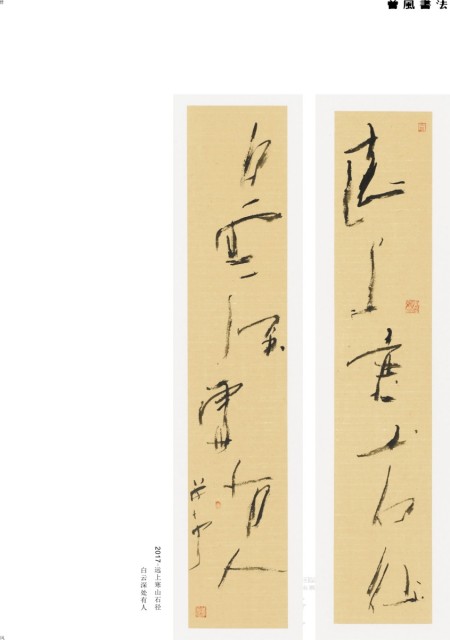 風書法
遠上寒山石径
白雲深處有人
2017·远上寒山石径
白云深处有人